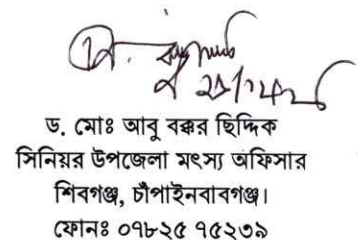 ড. মোঃ আবু বক্কর ছিদ্দিক
সিনিয়র উপজেলা মৎস্য অফিসার
শিবগঞ্জ, চাঁপাইনবাবগঞ্জ।
ফোনঃ ০৭৮২৫ ৭৫২৩৯